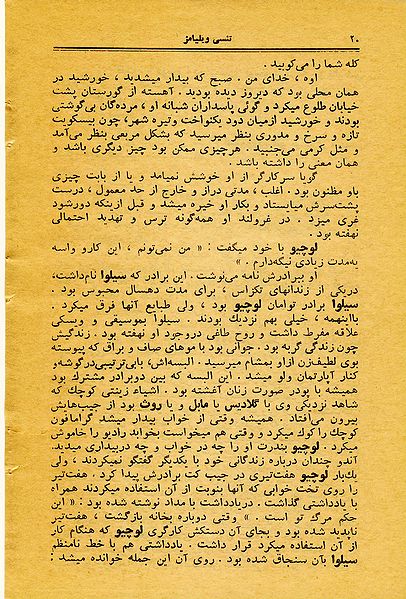 ۲۰
تنسی ویلیامز
کله شما را می‌کوبید .
اوه ، خدای من . صبح که بیدار میشدید ، خورشید در
همان محلی بود که دیروز دیده بودید . آهسته از گورستان پشت
خیابان طلوع میکرد و گوئی پاسداران شبانه او ، مرده‌گان بی‌گوشتی
بودند و خورشید ازمیان دود یکنواخت وتیره شهر، چون بیسکویت
تازه و سرخ و مدوری بنظر میرسید که بشکل مربعی بنظر می‌آمد
و مثل کرمی می‌جنبید . هرچیزی ممکن بود چیز دیگری باشد و
همان معنی را داشته باشد .
گویا سرکارگر از او خوشش نمیامد و یا از بابت چیزی
باو مظنون بود . اغلب ، مدتی دراز و خارج از حد معمول ، درست
پشت‌سرش میایستاد و بکار او خیره میشد و قبل ازینکه دورشود
غری میزد . در غرولند او همه‌گونه ترس و تهدید احتمالی
نهفته بود .
لوچیو با خود میگفت : « من نمی‌تونم ، این کارو واسه
یه‌مدت زیادی نیگه‌دارم . »
او ببرادرش نامه می‌نوشت . این برادر که سیلوا نام‌داشت،
دریکی از زندانهای تکزاس ، برای مدت ده‌سال محبوس بود .
سیلوا برادر توامان لوچیو بود ، ولی طبایع آنها فرق میکرد .
بااینهمه ، خیلی بهم نزدیك بودند . سیلوا بموسیقی و ویسکی
علاقه مفرط داشت و روح طاغی دروجود او نهفته بود . زندگیش
چون زندگی گربه بود . جوانی بود با موهای صاف و براق که پیوسته
بوی لطیف‌زن ازاو بمشام میرسید . البسه‌اش، بابی‌ترتیبی‌درگوشه‌و
کنار آپارتمان ولو میشد . این البسه که بین دوبرادر مشترك بود
همیشه با پودر صورت زنان آغشته بود . اشیاء زینتی کوچك که
شاهد نزدیکی وی با گلادیس یا مابل و یا روث بود از جیب‌هایش
بیرون می‌افتاد . همیشه وقتی از خواب بیدار میشد گرامافون
کوچك را کوك میکرد و وقتی هم میخواست بخوابد رادیو را خاموش
میکرد . لوچیو بندرت او را چه در خواب و چه دربیداری میدید
آندو چندان درباره زندگانی خود با یکدیگر گفتگو نمیکردند ، ولی
یك‌بار لوچیو هفت‌تیری در جیب کت برادرش پیدا کرد . هفت‌تیر
را روی تخت خوابی که آنها بنوبت از آن استفاده میکردند همراه
با یادداشتی گذاشت . دریادداشت با مداد نوشته شده بود : « این
حکم مرگ تو است . » وقتی دوباره بخانه بازگشت ، هفت‌تیر
ناپدید شده بود و بجای آن دستکش کارگری لوچیو که هنگام کار
از آن استفاده میکرد قرار داشت . یادداشتی هم با خط نامنظم
سیلوا بآن سنجاق شده بود . روی آن این جمله خوانده میشد :